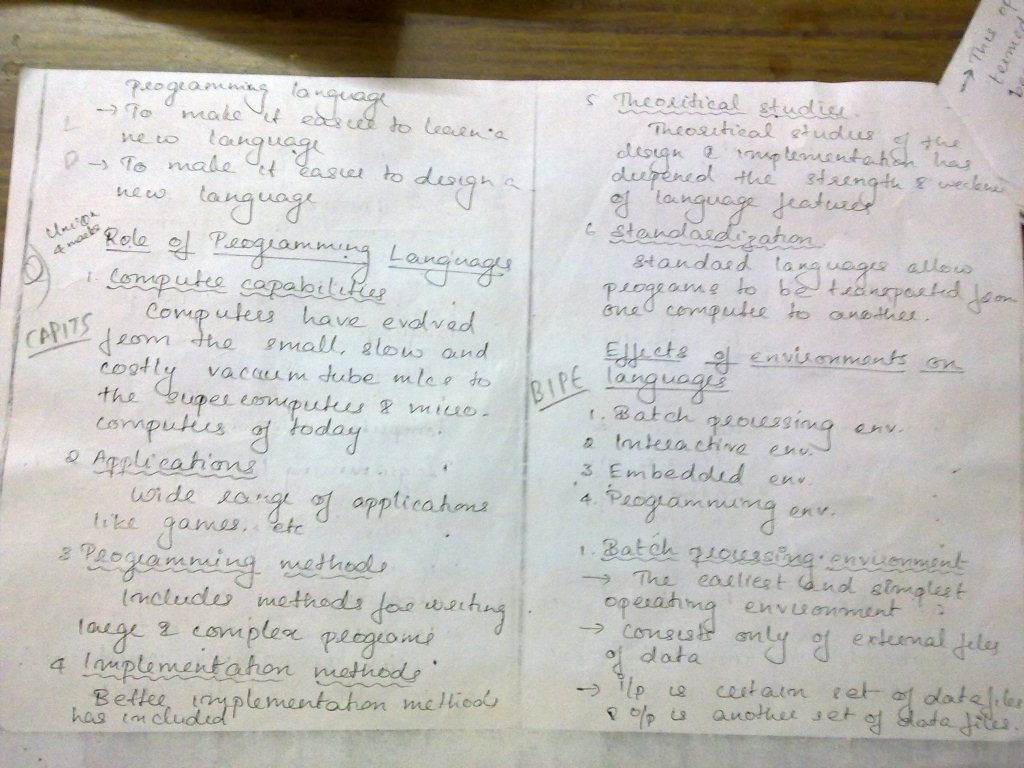 programming language
→ To make it easier to learn a
new language
→ To make it easier to design a
new language
Union
4 marks
Role of Programming Languages
1. Computer capabilities
Computers have evolved
CAPITS
from the small, slow and
costly vacuum tube m/cs to
the supercomputers & micro-
computers of today
2 Applications
Wide range of applications
like games. etc
3 Programming methods
Includes methods for writing
large & complex programs
4 Implementation methods
Better implementation methods
has included
5 Theoritical studies
Theoritical studies of the
design & implementation has
deepened the strength &
of language features
6 Standardization
Standard languages allow
programs to be transported from
one computer to another.
Effects of environments on
languages
BIPE
1. Batch processing env.
2 Interactive env.
3 Embedded env.
4. Programming env.
1. Batch processing environment
→ The earliest and simplest
operating environment
→ consists only of external files
of data
→ i/p is certain set of data files
& o/p is another set of data files.
→ This
termed